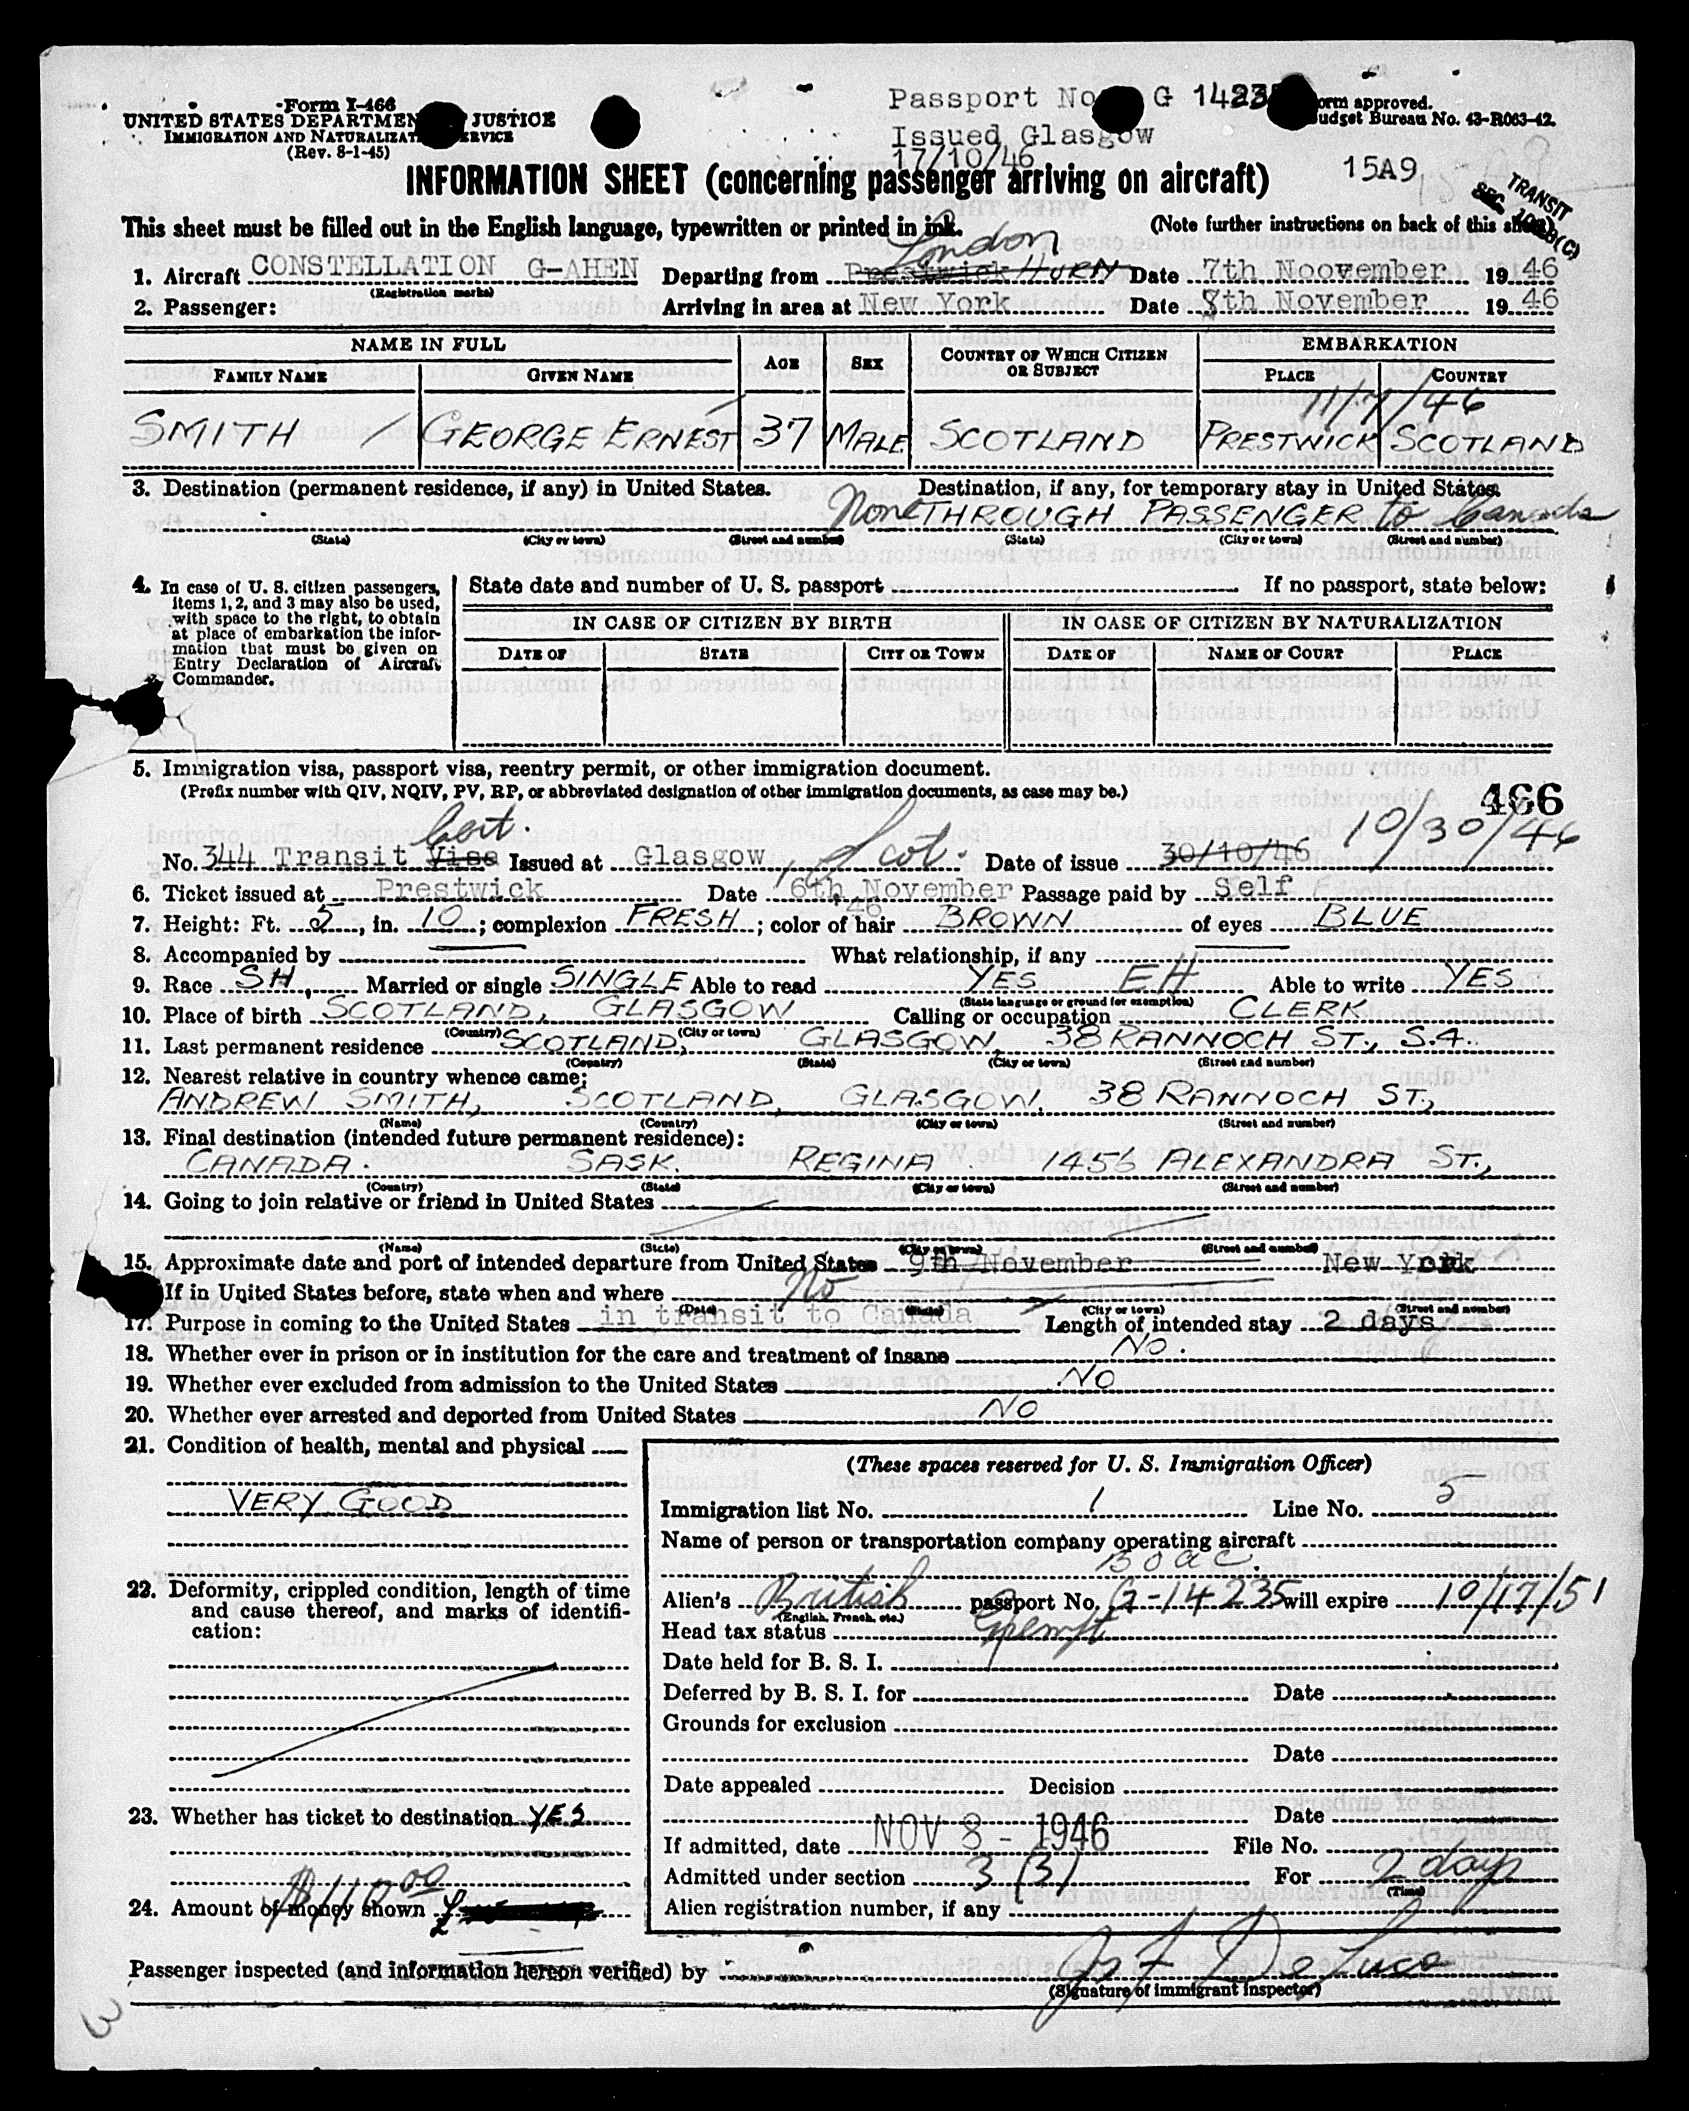 Form I-466
UNITED STATES DEPARTMENT JUSTICE
IMMIGRATION AND NATURALIZAT SERVICE
(Rev. 8-1-45)
Passport No G 14235
Issued Glasgow
17/10/46
orm approved.
udget Bureau No. 43-R063-42.
15A9
TRANSIT
SEC
INFORMATION SHEET (concerning passenger arriving on aircraft)
This sheet must be filled out in the English language, typewritten or printed in ink.
(Note further instructions on back of this sheet)
London
1. Aircraft CONSTELLATION G-AHEN Departing from Prestwick HURN Date 7th Noovember 19 46
(Registration marks)
2. Passenger: Arriving in area at New York Date 8th November 19 46
NAME IN FULL AGE SEX COUNTRY OF WHICH CITIZEN OR SUBJECT EMBARKATION
FAMILY NAME GIVEN NAME PLACE COUNTRY
11/7/46
SMITH / GEORGE ERNEST 37 MALE SCOTLAND PRESTWICK SCOTLAND
3. Destination (permanent residence, if any) in United States. Destination, if any, for temporary stay in United States.
None THROUGH PASSENGER to Canada
(State) (City or town) (Street and number) (State) (City or town) (Street and number)
4. In case of U. S. citizen passengers,
items 1, 2, and 3 may also be used,
with space to the right, to obtain
at place of embarkation the infor-
mation that must be given on
Entry Declaration of Aircraft
Commander.
State date and number of U. S. passport If no passport, state below:
IN CASE OF CITIZEN BY BIRTH IN CASE OF CITIZEN BY NATURALIZATION
DATE OF STATE CITY OR TOWN DATE OF NAME OF COURT PLACE
5. Immigration visa, passport visa, reentry permit, or other immigration document.
(Prefix number with QIV, NQIV, PV, RP, or abbreviated designation of other immigration documents, as case may be.)
466
Cert. 10/30/46
No. 344 Transit Visa Issued at Glasgow, Scot. Date of issue 30/10/46
6. Ticket issued at Prestwick Date 6th November Passage paid by Self
46
7. Height: Ft. 5, in. 10; complexion FRESH; color of hair BROWN of eyes BLUE
8. Accompanied by What relationship, if any
9. Race SH Married or single SINGLE Able to read YES EH Able to write YES
(State language or ground for exemption)
10. Place of birth SCOTLAND, GLASGOW Calling or occupation CLERK
(Country) (City or town)
11. Last permanent residence SCOTLAND, GLASGOW, 38 RANNOCH ST., S.4.
(Country) (State) (City or town) (Street and number)
12. Nearest relative in country whence came:
ANDREW SMITH, SCOTLAND, GLASGOW, 38 RANNOCH ST.,
(Name) (Country) (City or town) (Street and number)
13. Final destination (intended future permanent residence):
CANADA. SASK. REGINA. 1456 ALEXANDRA ST.,
(Country) (State) (City or town) (Street and number)
14. Going to join relative or friend in United States
(Name) (State) (City or town) (Street and number)
15. Approximate date and port of intended departure from United States 9th November New York
If in United States before, state when and where No
(Date) (State) (City or town) (Street and number)
17. Purpose in coming to the United States in transit to Canada Length of intended stay 2 days
18. Whether ever in prison or in institution for the care and treatment of insane NO.
19. Whether ever excluded from admission to the United States NO
20. Whether ever arrested and deported from United States NO
21. Condition of health, mental and physical
VERY GOOD
22. Deformity, crippled condition, length of time
and cause thereof, and marks of identifi-
cation:
23. Whether has ticket to destination YES
$110 00
24. Amount of money shown
(These spaces reserved for U. S. Immigration Officer)
Immigration list No. 1 Line No. 5
Name of person or transportation company operating aircraft
BOAC.
Alien's British passport No. G-14235 will expire 10/17/51
(English, French, etc.)
Head tax status Exempt
Date held for B. S. I.
Deferred by B. S. I. for Date
Grounds for exclusion
Date
Date appealed Decision
Date
If admitted, date NOV 8 - 1946 File No.
Admitted under section 3 (3) For 2 days
(Time)
Alien registration number, if any
Passenger inspected (and information hereon verified) by Jos F De Luca
(Signature of immigrant inspector)
3